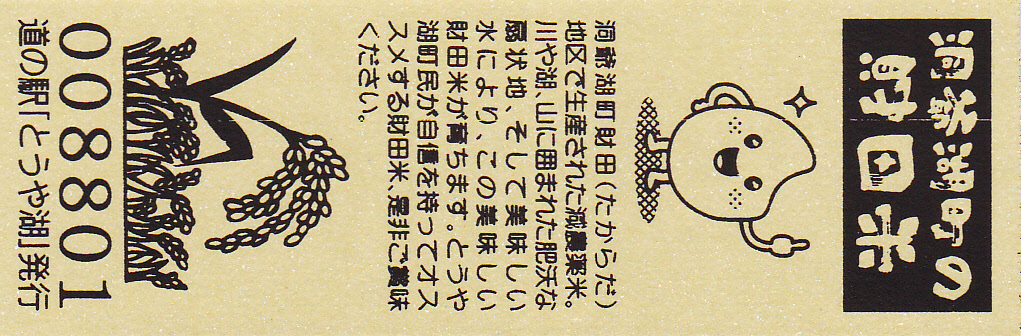 洞爺湖町の
財田米
洞爺湖町財田(たからだ)
地区で生産された減農薬米。
川や湖、山に囲まれた肥沃な
扇状地、そして美味しい
水により、この美味しい
財田米が育ちます。とうや
湖町民が自信を持ってオス
スメする財田米、是非ご賞味
ください。
008801
道の駅「とうや湖」発行